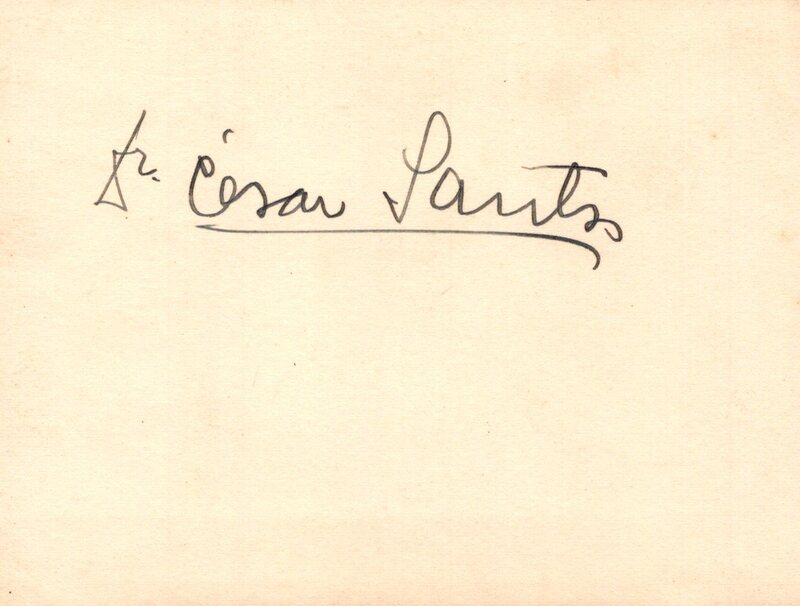 Dr. César Santos